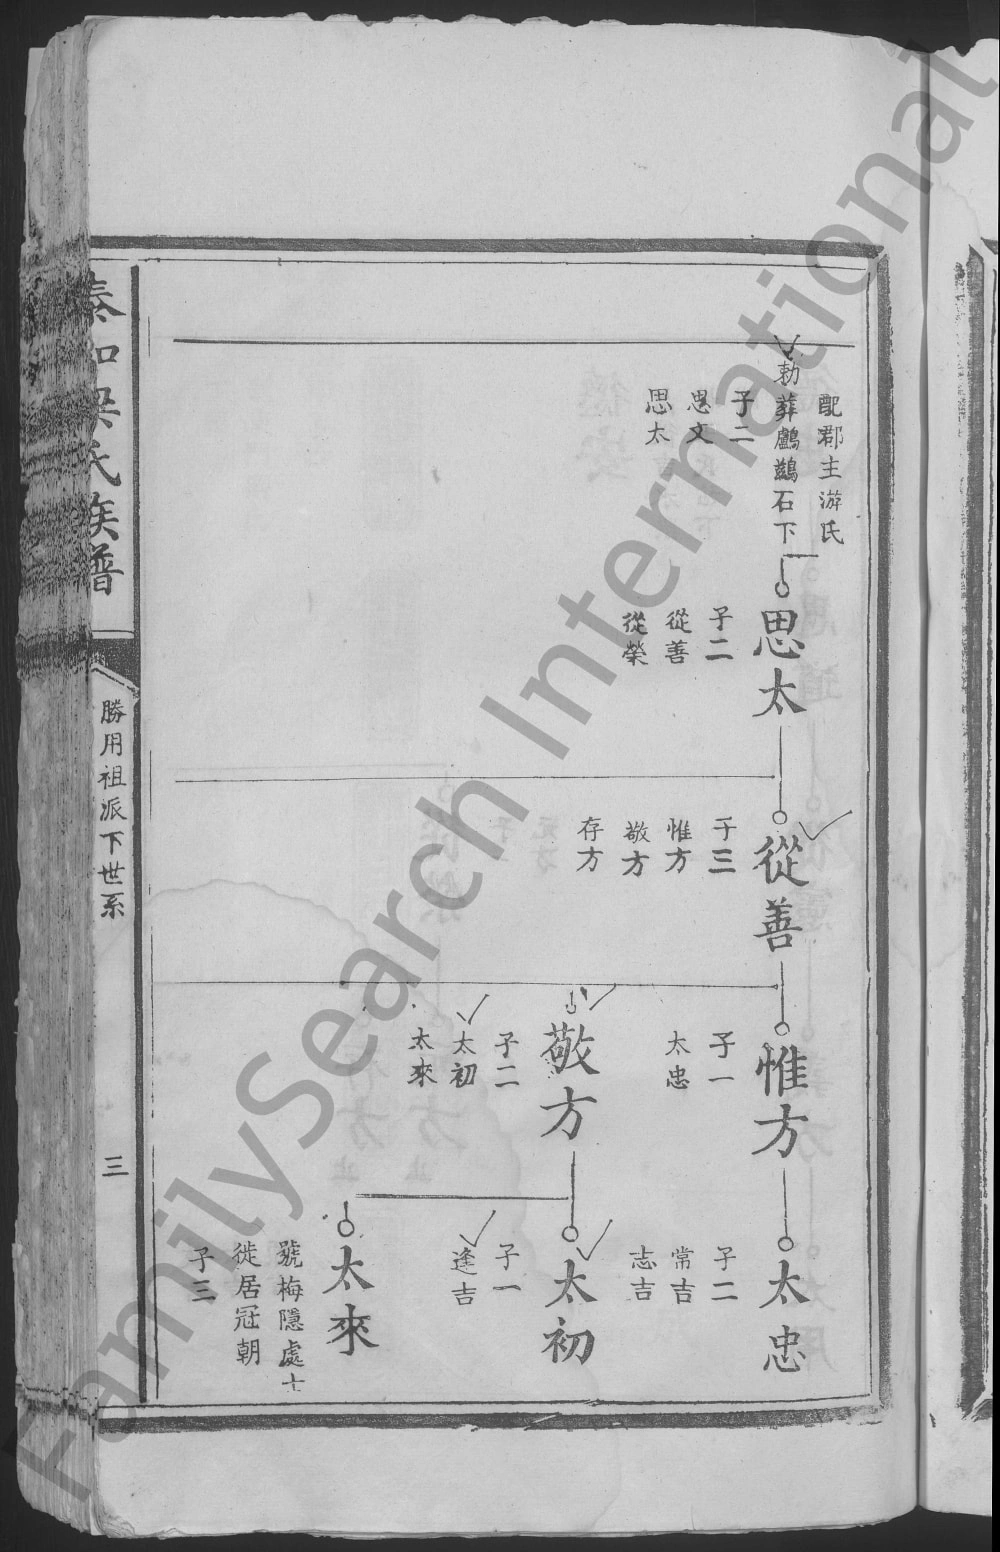 配郡主游氏
勅葬鸕鷀石下
子二
思文
思太
思太
子二
從善
從榮
從善
子三
惟方
敬方
存方
惟方
子一
太忠
敬方
子二
太初
太來
太忠
子二
常吉
志吉
太初
子一
逢吉
太來
號梅隱處士
徙居冠朝
子三
泰和梁氏族譜
勝用祖派下世系
三
FamilySearch International